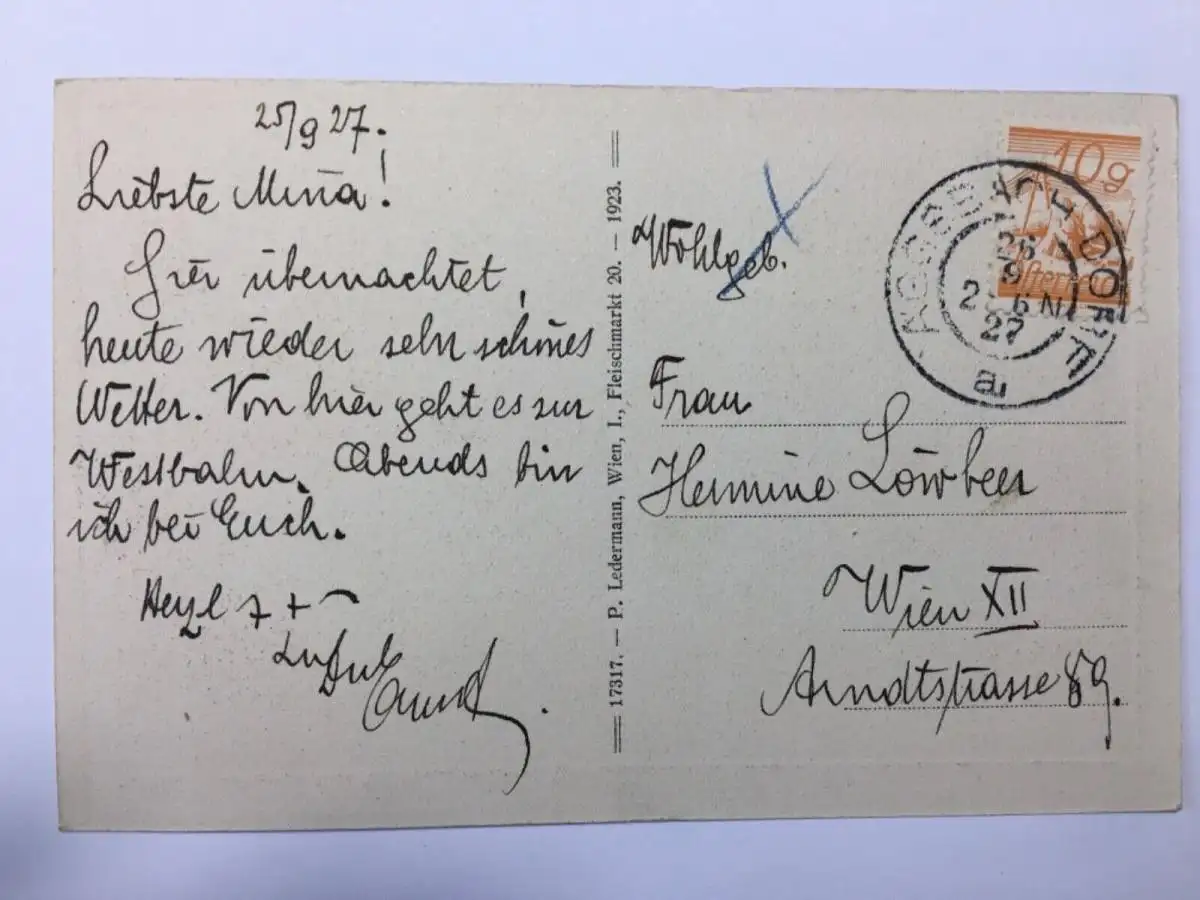 25/9 27.
Liebste Mina!
Hier übernachtet,
heute wieder sehr schönes
Wetter. Von hier geht es zur
Westbahn. Abends bin
ich bei Euch.
Herzl
17317. — P. Ledermann, Wien, I., Fleischmarkt 20. — 1923.
10g
Österreich
DORF
26
9
27
a
Wohlgeb.
Frau
Hermine Löwbeer
Wien XII
Arndtstrasse 89.